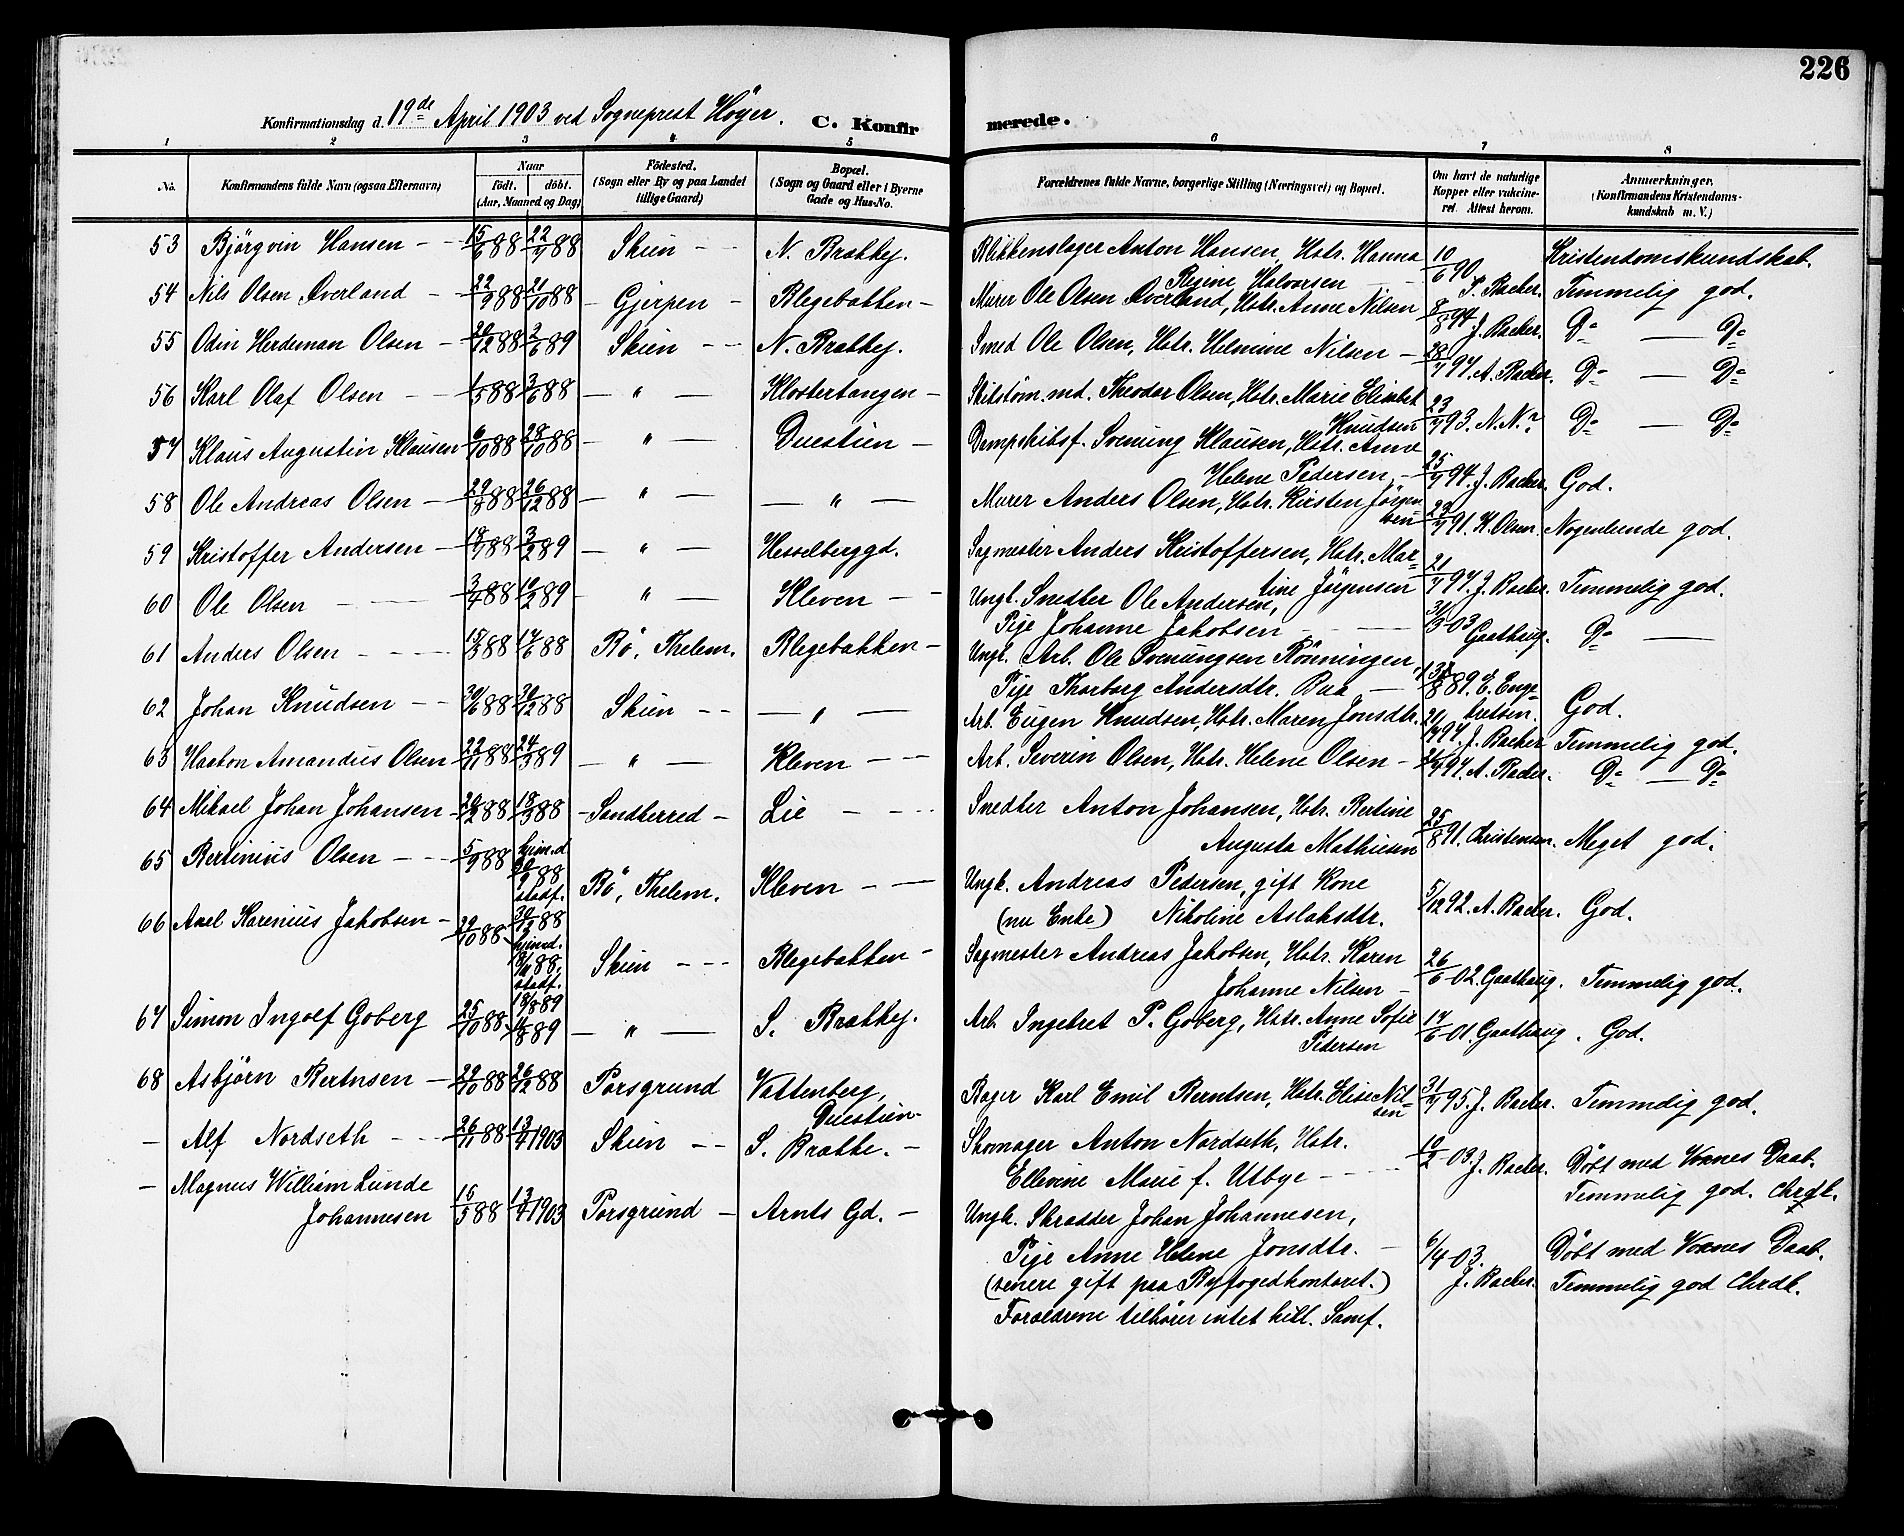 226
Konfirmationsdag d. 19de April 1903 ved Sogneprest Höyer. C. Konfirmerede.
1 2 3 4 5 6 7 8
No. Konfirmandens fulde Navn (ogsaa Efternavn) Naar födt. döbt. (Aar, Maaned og Dag) Födested. (Sogn eller By og paa Landet tillige Gaard) Bopæl. (Sogn og Gaard eller i Byerne Gade og Hus-No. Forældrenes fulde Navne, borgerlige Stilling (Næringsvei) og Bopæl. Om havt de naturlige Kopper eller vaccineret. Attest herom. Anmærkninger. (Konfirmandens Kristendomskundskab m. V.)
53 Björgvin Hansen 15/6 88 22/7 88 Skien N. Brækkej. Blikkenslager Anton Hansen, Hstr. Hanna Regine Halvorsen 10/6 90 J. Backer. Kristendomskundskab. Temmelig god.
54 Nils Olsen Överland 22/9 88 21/10 88 Gjerpen Blegebakken Murer Ole Olsen Överland, Hstr. Anne Nilsen 8/8 94 J. Backer. Do Do
55 Odin Herdeman Olsen 12 88 2/6 89 Skien N. Brækkej. Smed Ole Olsen, Hstr. Helmine Nilsen 28/7 97. A. Backer. Do Do
56 Karl Olaf Olsen 1/5 88 3/6 88 " Klostertangen Theodor Olsen, Hstr. Marie Elisabet Knudsen 23/7 93. N. N. Do Do
57 Klaus Augustin Klausen 6/10 88 28/10 88 " Duestien Dampskibsf. Svenung Klausen, Hstr. Anne Helene Pedersen 25/7 94. J. Backer. God.
58 Ole Andreas Olsen 88 26/12 88 " " Murer Anders Olsen, Hstr. Kirsten Jörgensen 91. K. Olsen. Nogenlunde god.
59 Kristoffer Andersen 18/7 88 3/2 89 " Hesselberggd. Sagmester Anders Kristoffersen, Hstr. Martine Jörgensen 21/7 97. J. Backer. Temmelig god.
60 Ole Olsen 3/7 88 10/2 89 " Kleven Ungk. Snedker Ole Andersen, Pige Johanne Jakobsen 31/3 03 Gaathaug. Do
61 Anders Olsen 88 17/6 88 Bö, Thelem. Blegebakken Ungk. Arb. Ole Svenungsen Rönningen, Pige Thorborg Andersdtr. Bua 8 89. E. Engebretsen. God.
62 Johan Knudsen 30/6 88 30/12 88 Skien " Arb. Eugen Knudsen, Hstr. Maren Jonsdtr. 97. J. Backer Temmelig god.
63 Haakon Amandus Olsen 22/11 88 24/3 89 " Kleven Arb. Severin Olsen, Hstr. Helene Olsen 97. A. Backer. Do Do
64 Mikael Johan Johansen 88 18/3 88 Sandherred Lie Snedker Anton Johansen, Hstr. Bertine Augusta Mathiesen 25/8 91. Christensen. Meget god.
65 Bertinius Olsen 5/9 88 hjem.d. 88 stadf. 30/12 88 Bö, Thelem. Kleven Ungk. Andreas Pedersen, gift Kone (nu Enke) Nikoline Aslaksdtr. 5/12 92. A. Backer. God.
66 Axel Karenius Jakobsen 29/10 88 hjem.d. 88 stadf. 89 Skien Blegebakken Sagmester Andreas Jakobsen, Hstr. Karen Johanne Nilsen 26/6 02 Gaathaug. Temmelig god.
67 Simon Ingolf Goberg 25/10 88 89 " S. Brækkej. Arb. Ingebret P. Goberg, Hstr. Anne Sofie Pedersen 17/6 01. Gaathaug. God.
68 Asbjörn Berntsen 29/10 88 26/12 88 Porsgrund Vattenberg, Duestien Bager Karl Emil Berntsen, Hstr. Elise Nilsen 31/7 95. J. Backer. Temmelig god.
— Alf Nordseth 26/11 88 13/4 1903 Skien S. Brække. Skomager Anton Nordseth, Hstr. Ellevine Marie f. Utbye 10/2 03 J. Backer. Döbt med Voxnes Daab. Temmelig god. Chrdk.
— Magnus William Lunde Johannesen 15/5 88 13/4 1903 Porsgrund Arnts Gd. Ungk. Skrædder Johan Johannesen, Pige Anne Helene Jonsdtr.
(senere gift paa Byfogedkontoret.)
Forældrene tilhörer intet kill. Samf.
6/4 03. J. Backer. Döbt med Voxnes Daab. Temmelig god Chrdk.